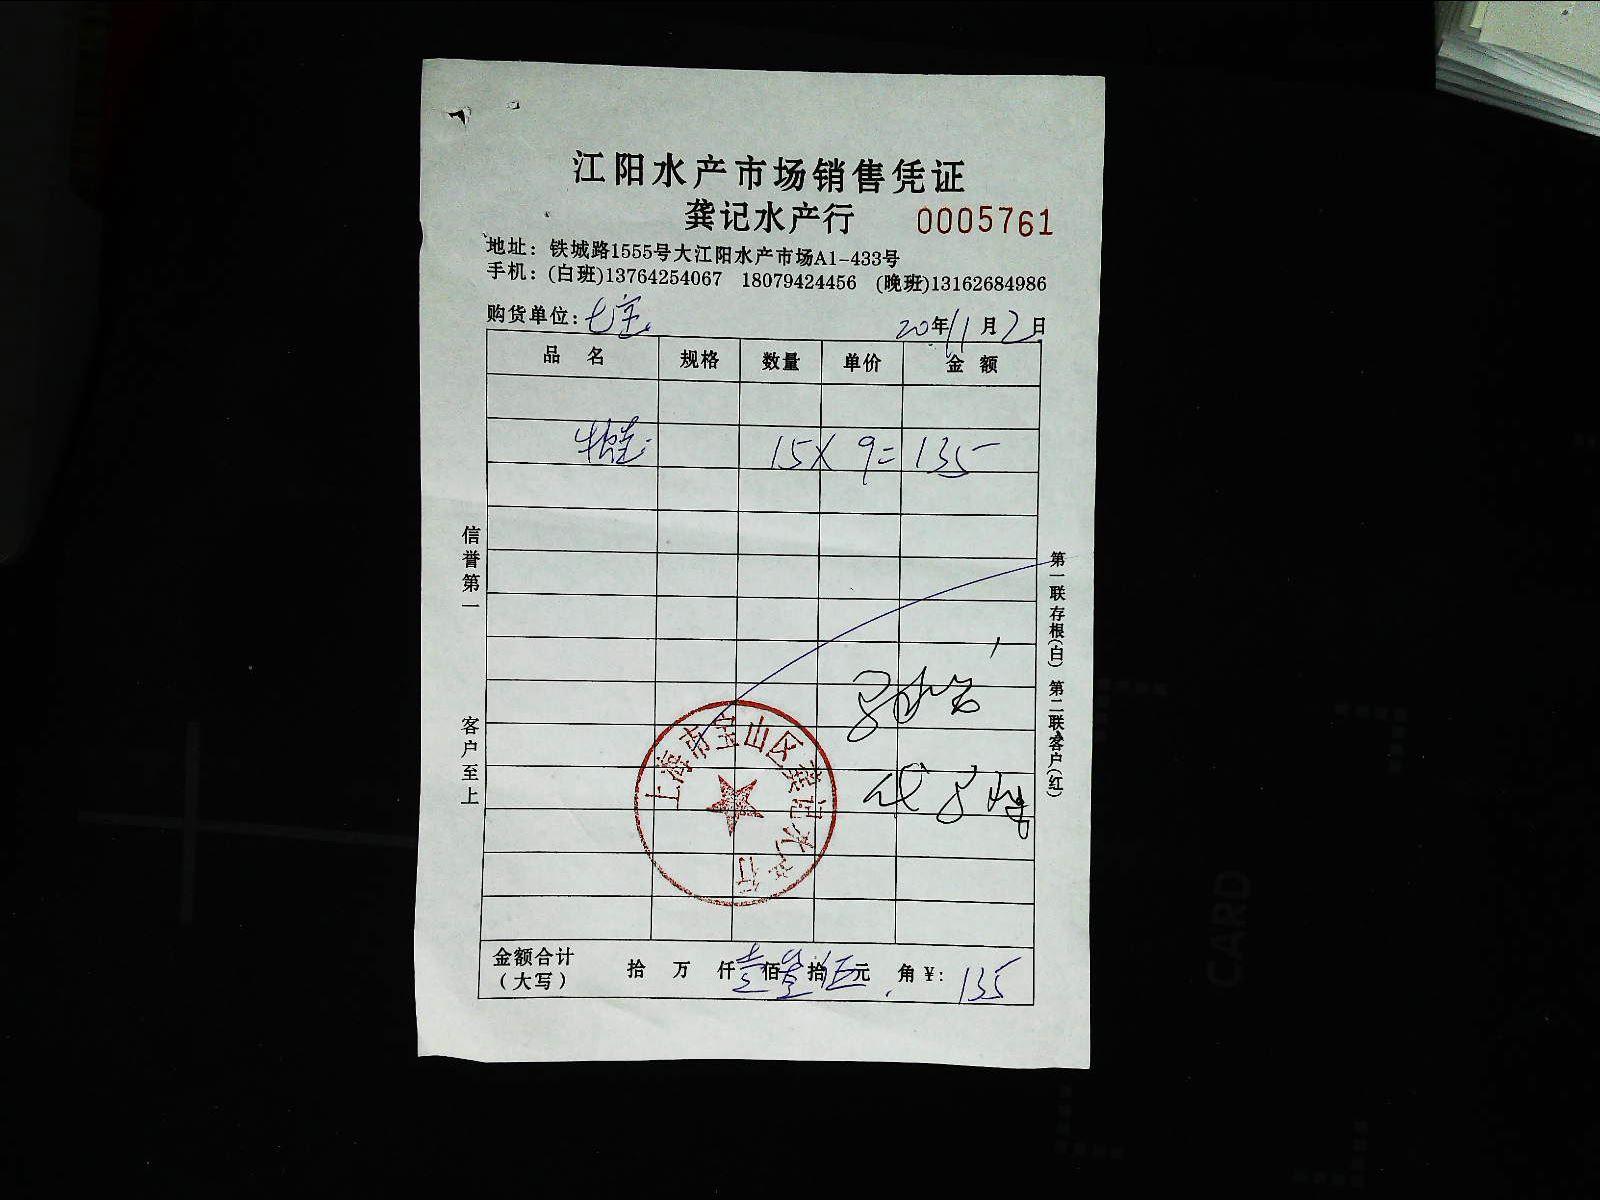 江阳水产市场销售凭证
龚记水产行 0005761
地址：铁城路1555号大江阳水产市场A1-433号
手机：(白班)13764254067 18079424456 (晚班)13162684986
购货单位：七宝 20年11月2日
品名 规格 数量 单价 金额
15 X 9 = 135
信誉第一 客户至上
第一联存根(白) 第二联客户(红)
上海市宝山区龚记水产行
金额合计（大写） 拾 万 仟壹佰叁拾伍元 角 ¥: 135